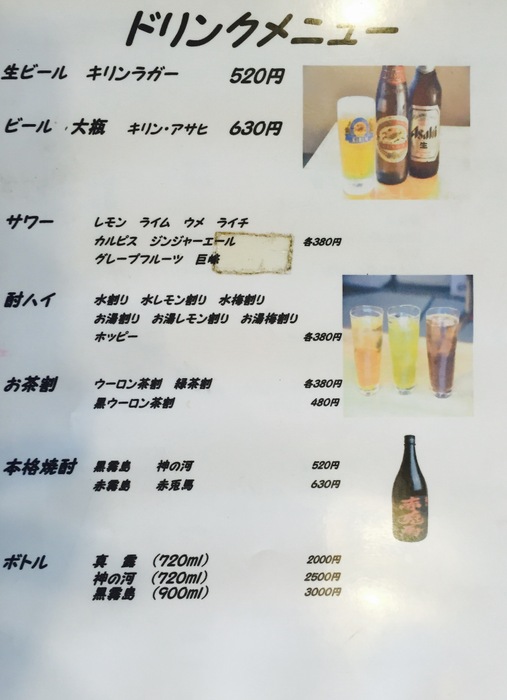 ドリンクメニュー
生ビール キリンラガー 520円
ビール 大瓶 キリン・アサヒ 630円
Asahi
生
サワー レモン ライム ウメ ライチ
カルピス ジンジャーエール 各380円
グレープフルーツ 巨峰
酎ハイ 水割り 水レモン割り 水梅割り
お湯割り お湯レモン割り お湯梅割り
ホッピー 各380円
お茶割 ウーロン茶割 緑茶割 各380円
黒ウーロン茶割 480円
本格焼酎 黒霧島 神の河 520円
赤霧島 赤兎馬 630円
赤兎馬
ボトル 真 露 (720ml) 2000円
神の河 (720ml) 2500円
黒霧島 (900ml) 3000円